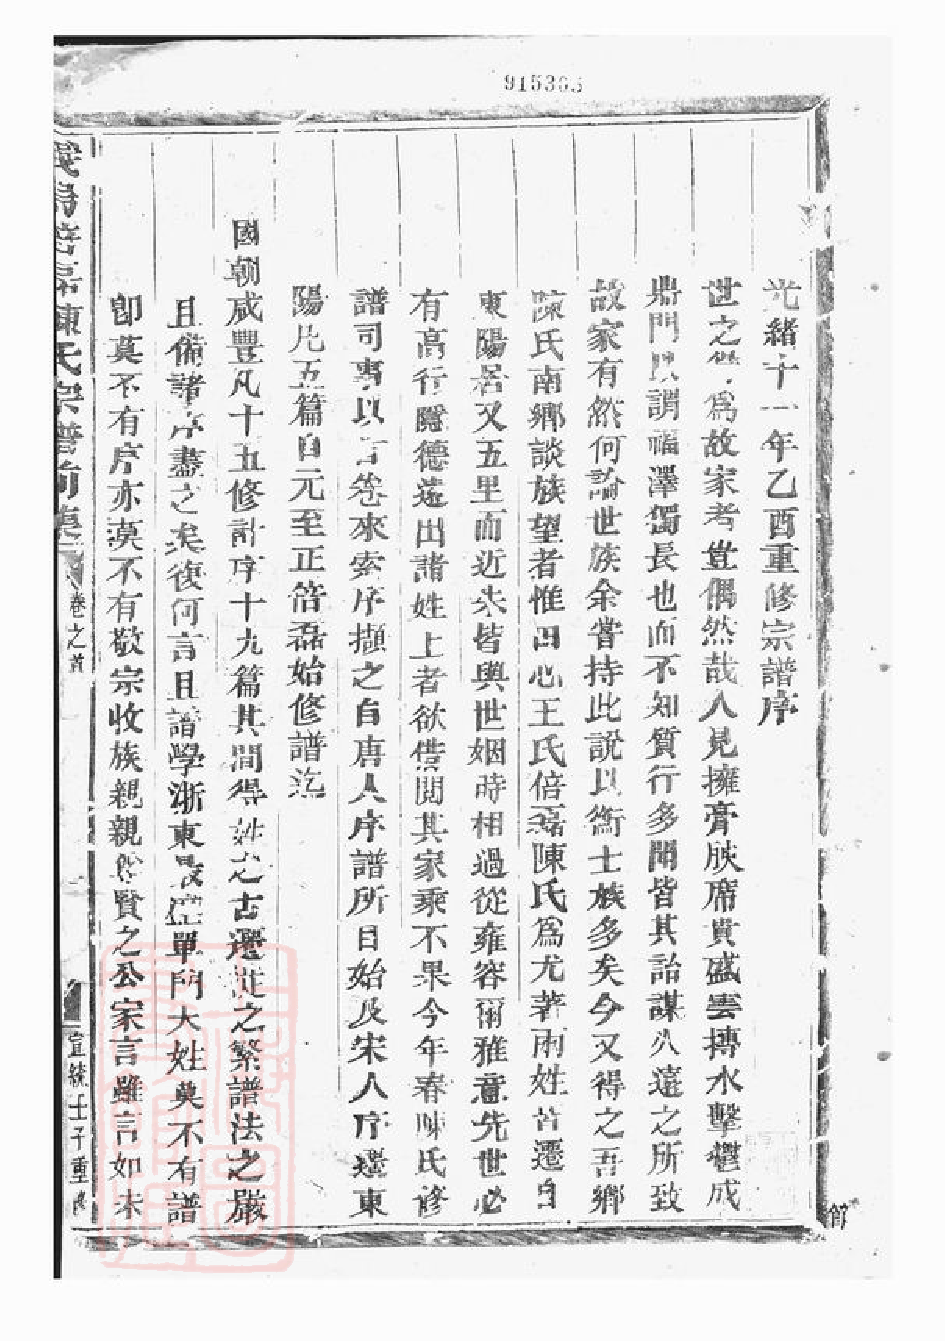 915363
光緒十一年乙酉重修宗譜序
世之為故家考豈偶然哉人見擁膏腴席貴盛雲摶水擊礎成
鼎門以謂福澤獨長也而不知質行多聞皆其詒謀久遠之所致
故家有然何論世族余嘗持此說以衡士族多矣今又得之吾鄉
陳氏南鄉談族望者惟田心王氏倍磊陳氏為尤著兩姓皆遷自
東陽居又五里而近夫皆與世姻時相過從雍容爾雅意先世必
有高行隱德遠出諸姓上者欲借閱其家乘不果今年春陳氏修
譜司事以首卷來索序擷之自唐人序譜所目始及宋人序遷東
陽凡五篇自元至正倍磊始修譜迄
國朝咸豐凡十五修計序十九篇其間得姓之古遷徙之繁譜法之嚴
且備諸序盡之矣復何言且譜學浙東最盛單門大姓莫不有譜
即莫不有序亦莫不有敬宗收族親親賢之公家言雖言如未
陳氏宗譜前集
卷之首
宣統壬子重修